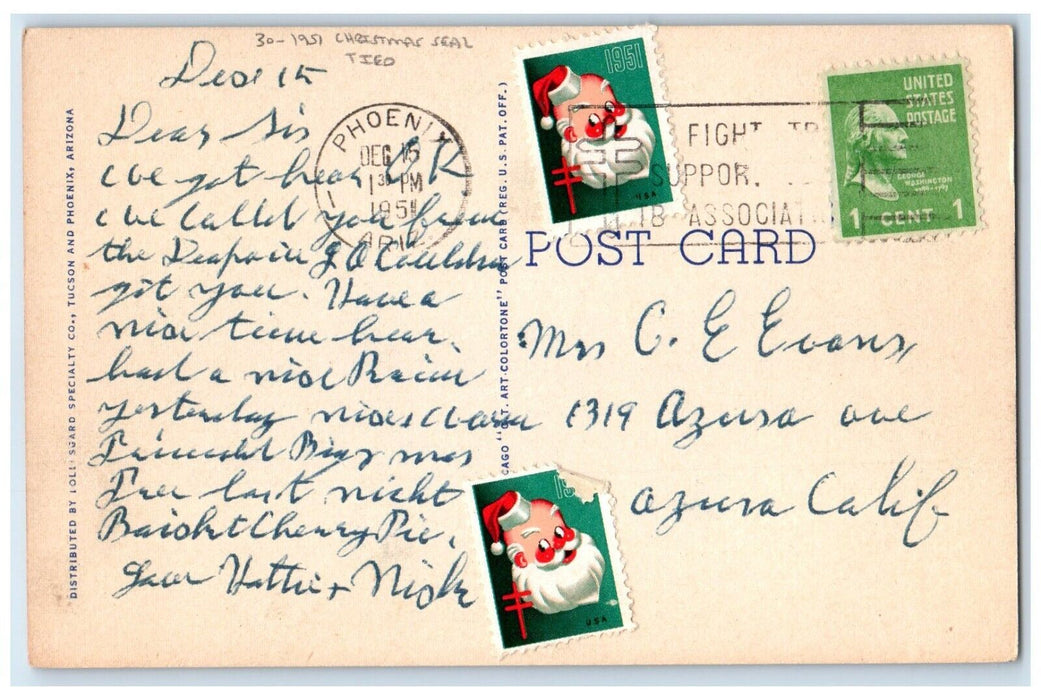 30-1951 CHRISTMAS SEAL
TIED
Dece 15
Dear Sis
we got hear OK
we called you from
the Deapoin L.A Couldn
git you. Have a
nice time hear.
had a nice Rain
yesterday nice + warm
Painted Big mas
Tree last night
Baisht Cherry Pie.
Love Hattie + Nick
DISTRIBUTED BY LOLLESGARD SPECIALTY CO., TUCSON AND PHOENIX, ARIZONA
PHOENIX
DEC 15
1 30 PM
1951
ARIZ.
FIGHT TB
SUPPOR
TB ASSOCIAT
1951
USA
UNITED
STATES
POSTAGE
GEORGE
WASHINGTON
1 CENT 1
POST CARD
CAGO "C.T. ART-COLORTONE" POST CARD (REG. U.S. PAT. OFF.)
Mrs C. E Evans
1319 Azusa ave
Azusa Calif
19
USA